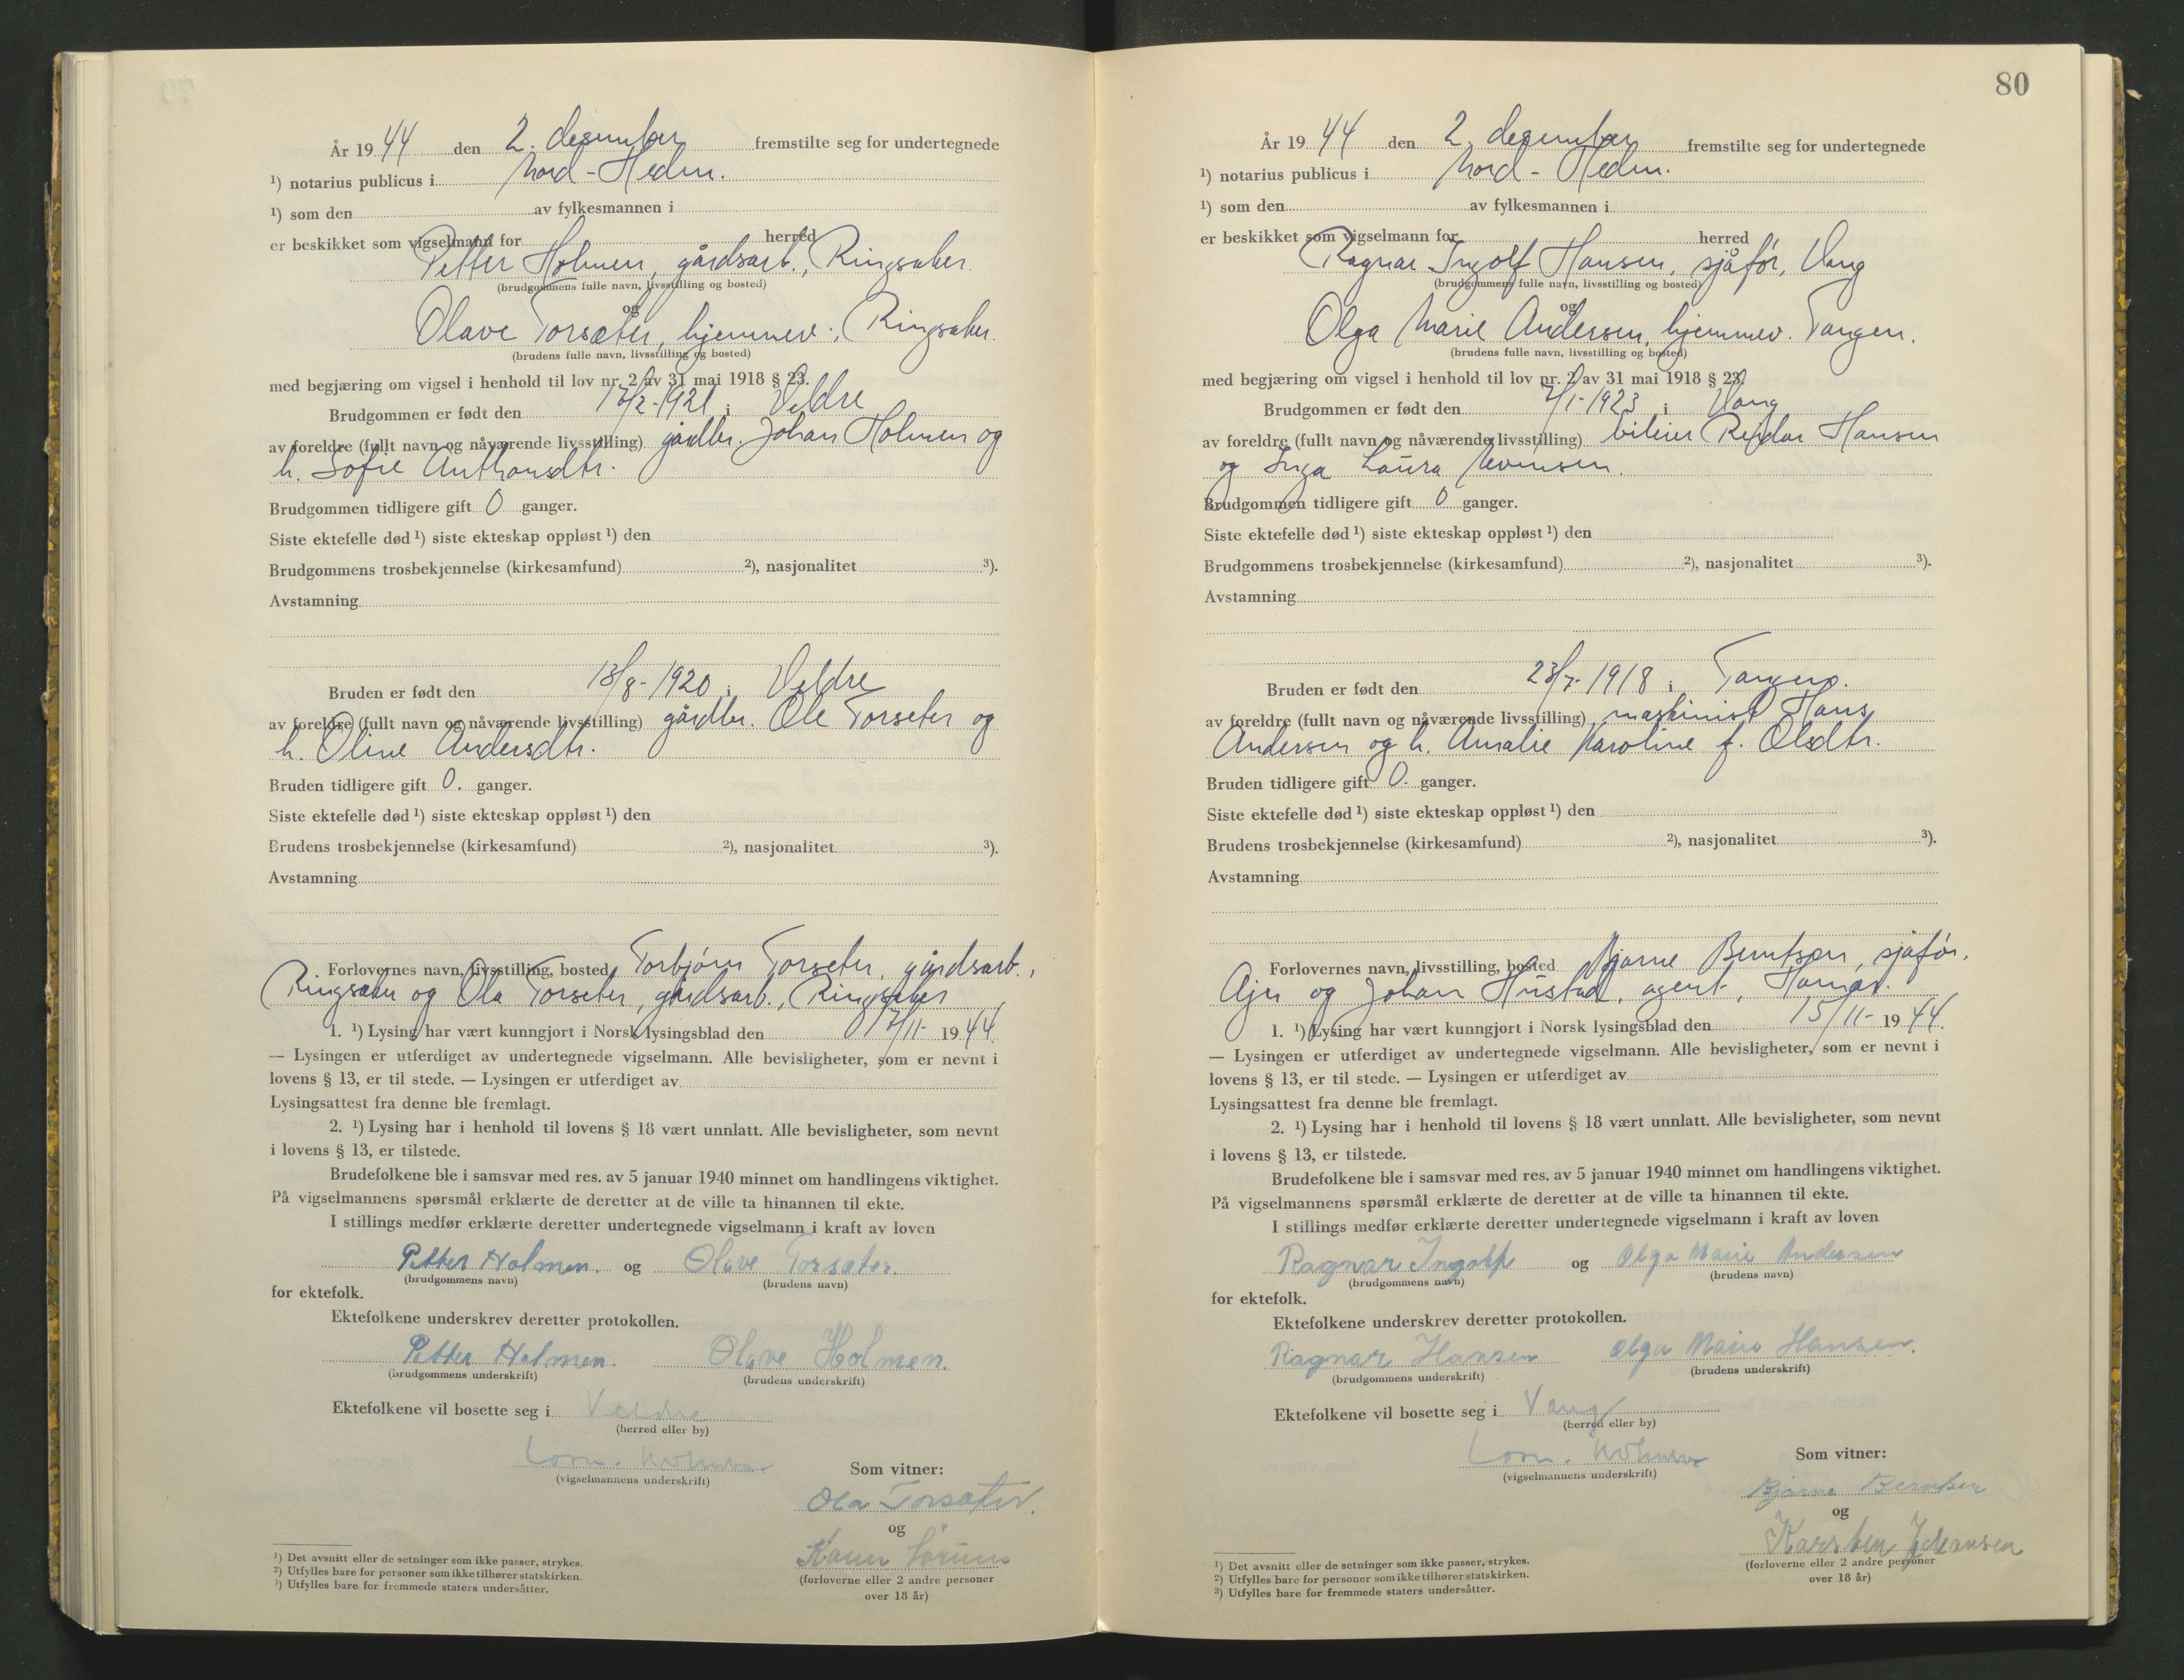 År 1944 den 2. desember fremstilte seg for undertegnede
¹) notarius publicus i Nord-Hedm.
¹) som den av fylkesmannen i
er beskikket som vigselmann for herred
Petter Holmen, gårdsarb., Ringsaker.
(brudgommens fulle navn, livsstilling og bosted)
og
Olave Torsæter, hjemmev., Ringsaker.
(brudens fulle navn, livsstilling og bosted)
med begjæring om vigsel i henhold til lov nr. 2 av 31 mai 1918 § 23.
Brudgommen er født den /2-1921 i Veldre
av foreldre (fullt navn og nåværende livsstilling) gårdbr. Johan Holmen og
h. Sofie Anthonsdtr.
Brudgommen tidligere gift 0 ganger.
Siste ektefelle død ¹) siste ekteskap oppløst ¹) den
Brudgommens trosbekjennelse (kirkesamfund) ²), nasjonalitet ³).
Avstamning
Bruden er født den 13/8-1920 i Veldre
av foreldre (fullt navn og nåværende livsstilling) gårdbr. Ole Torseter og
h. Oline Andersdtr.
Bruden tidligere gift 0. ganger.
Siste ektefelle død ¹) siste ekteskap oppløst ¹) den
Brudens trosbekjennelse (kirkesamfund) ²), nasjonalitet ³).
Avstamning
Forlovernes navn, livsstilling, bosted Torbjørn Torseter, gårdsarb.,
Ringsaker og Ola Torseter, gårdsarb., Ringsaker
1. ¹) Lysing har vært kunngjort i Norsk lysingsblad den 17/11- 1944.
— Lysingen er utferdiget av undertegnede vigselmann. Alle bevisligheter, som er nevnt i
lovens § 13, er til stede. — Lysingen er utferdiget av
Lysingsattest fra denne ble fremlagt.
2. ¹) Lysing har i henhold til lovens § 18 vært unnlatt. Alle bevisligheter, som nevnt
i lovens § 13, er tilstede.
Brudefolkene ble i samsvar med res. av 5 januar 1940 minnet om handlingens viktighet.
På vigselmannens spørsmål erklærte de deretter at de ville ta hinannen til ekte.
I stillings medfør erklærte deretter undertegnede vigselmann i kraft av loven
Petter Holmen. og Olave Torsæter.
(brudgommens navn) (brudens navn)
for ektefolk.
Ektefolkene underskrev deretter protokollen.
Petter Holmen. Olave Holmen.
(brudgommens underskrift) (brudens underskrift)
Ektefolkene vil bosette seg i Veldre
(herred eller by)
(vigselmannens underskrift)
Som vitner:
Ola Torsæter.
og
(forloverne eller 2 andre personer
over 18 år)
¹) Det avsnitt eller de setninger som ikke passer, strykes.
²) Utfylles bare for personer som ikke tilhører statskirken.
³) Utfylles bare for fremmede staters undersåtter.
80
År 1944 den 2. desember fremstilte seg for undertegnede
¹) notarius publicus i Nord-Hedm.
¹) som den av fylkesmannen i
er beskikket som vigselmann for herred
Ragnar Ingolf Hansen, sjåfør, Vang
(brudgommens fulle navn, livsstilling og bosted)
og
Olga Marie Andersen, hjemmev. Tangen.
(brudens fulle navn, livsstilling og bosted)
med begjæring om vigsel i henhold til lov nr. 2 av 31 mai 1918 § 23.
Brudgommen er født den /1-1923 i Vang
av foreldre (fullt navn og nåværende livsstilling) bileier Reidar Hansen
og Inga Laura
Brudgommen tidligere gift 0 ganger.
Siste ektefelle død ¹) siste ekteskap oppløst ¹) den
Brudgommens trosbekjennelse (kirkesamfund) ²), nasjonalitet ³).
Avstamning
Bruden er født den 23/7-1918 i Tangen.
av foreldre (fullt navn og nåværende livsstilling) maskinist Hans
Andersen og h. Amalie Karoline f. Olsdtr.
Bruden tidligere gift 0. ganger.
Siste ektefelle død ¹) siste ekteskap oppløst ¹) den
Brudens trosbekjennelse (kirkesamfund) ²), nasjonalitet ³).
Avstamning
Forlovernes navn, livsstilling, bosted Bjarne Berntsen, sjåfør,
Ajer og Johan Hustad, agent, Hamar.
1. ¹) Lysing har vært kunngjort i Norsk lysingsblad den 15/11- 1944.
— Lysingen er utferdiget av undertegnede vigselmann. Alle bevisligheter, som er nevnt i
lovens § 13, er til stede. — Lysingen er utferdiget av
Lysingsattest fra denne ble fremlagt.
2. ¹) Lysing har i henhold til lovens § 18 vært unnlatt. Alle bevisligheter, som nevnt
i lovens § 13, er tilstede.
Brudefolkene ble i samsvar med res. av 5 januar 1940 minnet om handlingens viktighet.
På vigselmannens spørsmål erklærte de deretter at de ville ta hinannen til ekte.
I stillings medfør erklærte deretter undertegnede vigselmann i kraft av loven
Ragnar Ingolf og Olga Marie Andersen
(brudgommens navn) (brudens navn)
for ektefolk.
Ektefolkene underskrev deretter protokollen.
Ragnar Hansen Olga Marie Hansen.
(brudgommens underskrift) (brudens underskrift)
Ektefolkene vil bosette seg i Vang
(herred eller by)
(vigselmannens underskrift)
Som vitner:
Bjarne Berntsen
og
Karsten Johansen
(forloverne eller 2 andre personer
over 18 år)
¹) Det avsnitt eller de setninger som ikke passer, strykes.
²) Utfylles bare for personer som ikke tilhører statskirken.
³) Utfylles bare for fremmede staters undersåtter.